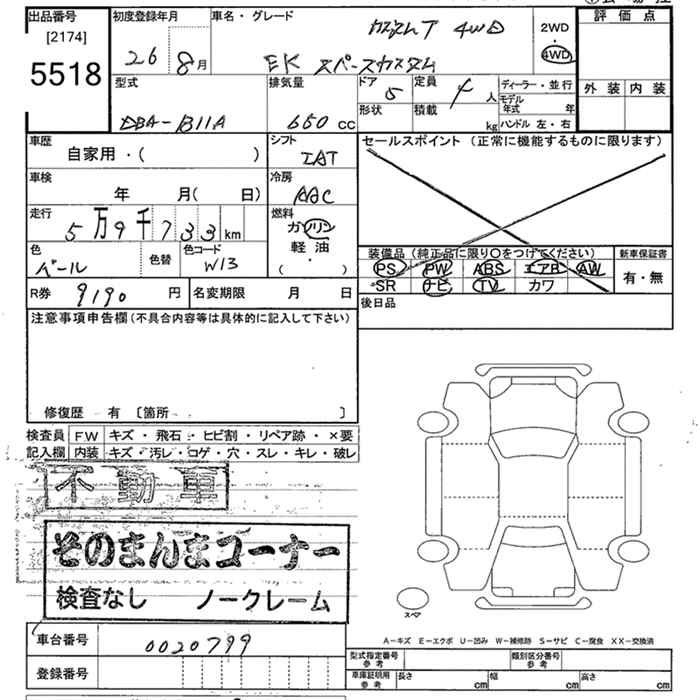 出品番号
[2174]
5518
初度登録年月
26 8月
車名・グレード
カスタムT 4WD
EK スペースカスタム
2WD
4WD
評価点
外装 内装
型式
DBA-B11A
排気量
650 cc
ドア
5
形状
定員
4 人
積載
kg
ディーラー・並行
モデル年式 年
ハンドル 左・右
車歴
自家用・( )
シフト
IAT
セールスポイント (正常に機能するものに限ります)
車検
年 月( 日)
冷房
AAC
走行
5万9千733km
燃料
ガソリン
軽油
( ・ )
色
パール
色替
色コード
W13
装備品 (純正品に限り○をつけてください)
PS PW ABS エアB AW
SR ナビ TV カワ
新車保証書
有・無
R券 9190 円
名変期限 月 日
後日品
注意事項申告欄(不具合内容等は具体的に記入して下さい)
修復歴 有 〔箇所 〕
検査員記入欄
FW キズ・飛石・ヒビ割・リペア跡・×要
内装 キズ・汚レ・コゲ・穴・スレ・キレ・破レ
不動車
そのまんまコーナー
検査なし ノークレーム
スペア
車台番号 0020799
登録番号
A-キズ E-エクボ U-凹み W-補修跡 S-サビ C-腐食 XX-交換済
型式指定番号 参考
類別区分番号 参考
車庫証明用 参考
長さ cm
幅 cm
高さ cm